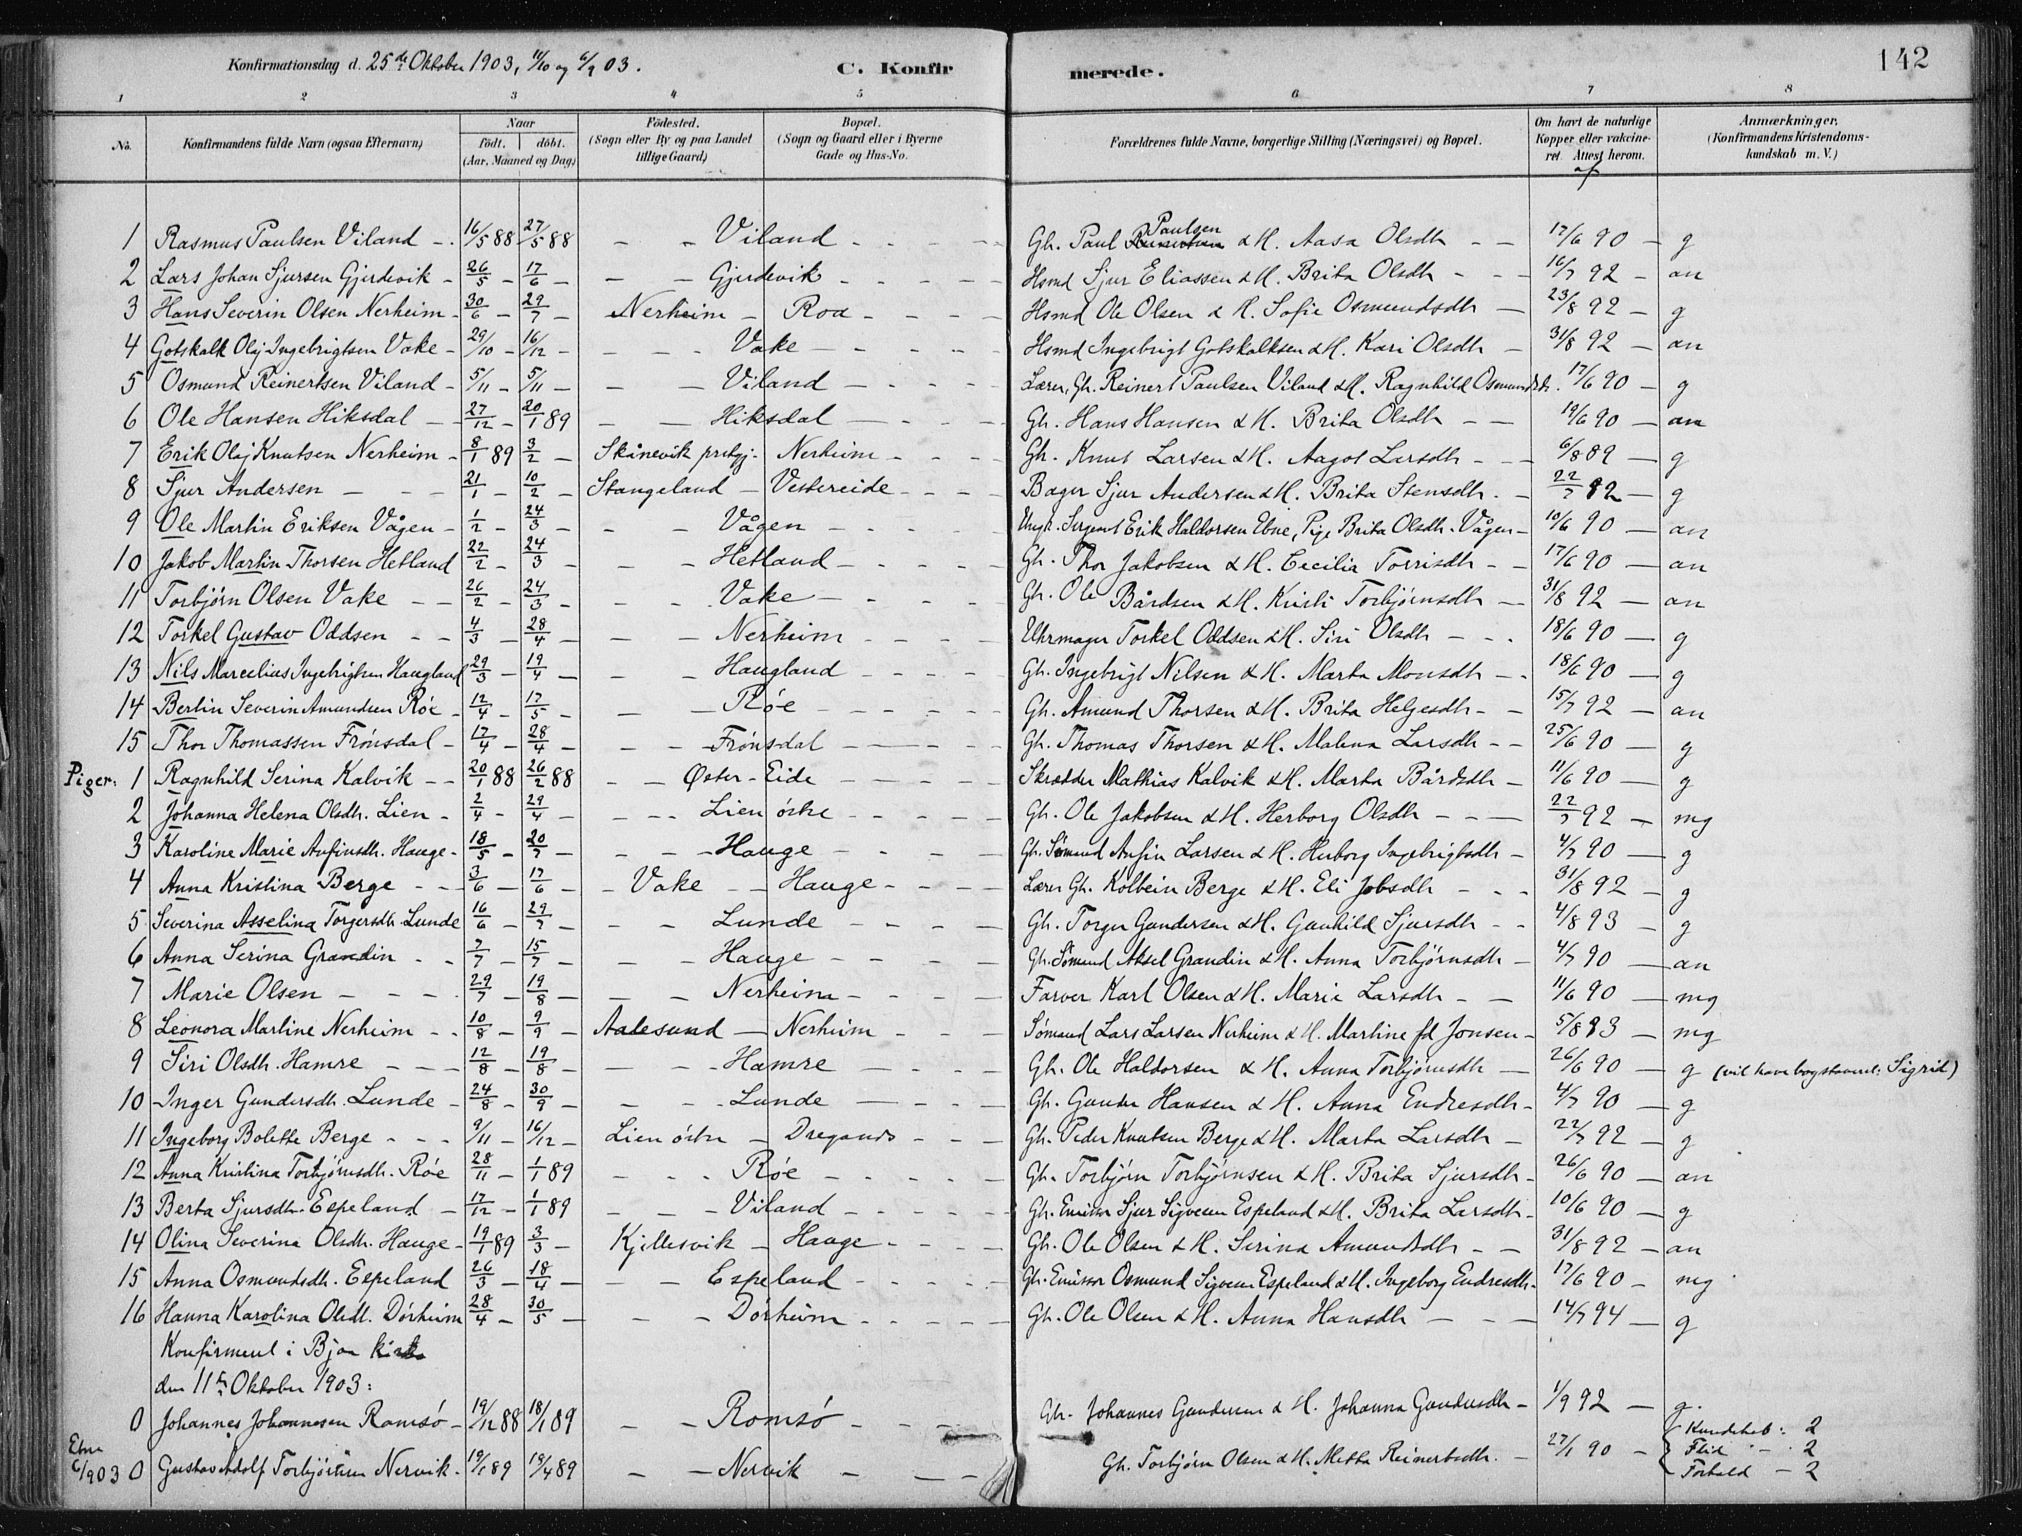 Konfirmationsdag d. 25de Oktober 1903, 11/10 og 6/9 03.
C. Konfirmerede.
142
1 2 3 4 5 6 7 8
No. Konfirmandens fulde Navn (ogsaa Efternavn) Naar født. døbt. (Aar, Maaned og Dag) Fødested. (Sogn eller By og paa Landet tillige Gaard) Bopæl. (Sogn og Gaard eller i Byerne Gade og Hus-No. Forældrenes fulde Navne, borgerlige Stilling (Næringsvei) og Bopæl. Om havt de naturlige Kopper eller vakcineret. Attest herom. af Anmærkninger. (Konfirmandens Kristendomskundskab m. V.)
1 Rasmus Paulsen Viland 16/5 88 27/5 88 - - Viland Gh. Paul Paulsen & H. Aasa Olsdtr 17/6 90 - g
2 Lars Johan Sjursen Gjerdevik 26/5 - 17/6 - - Gjerdevik Hsmd Sjur Eliassen & H. Brita Olsdtr 16/7 92 - an
3 Hans Severin Olsen Nerheim 30/6 - 29/7 - Nerheim - Roa Hsmd Ole Olsen & H. Sofie Osmundsdtr 23/8 92 - g
4 Gotskalk Olaj Ingebrigtsen Vake 29/10 - 16/12 - Vake Hsmd Ingebrigt Gotskalksen & H. Kari Olsdtr 31/8 92 - an
5 Osmund Reinertsen Viland 5/11 - 5/11 - Viland Lærer, Gh. Reinert Paulsen Viland & H. Ragnhild Osmundsdtr. 17/6 90 - g
6 Ole Hansen Hiksdal 27/12 - 20/1 89 - Hiksdal Gh. Hans Hansen & H. Brita Olsdtr 19/6 90 - an
7 Erik Olaj Knutsen Nerheim 8/1 89 3/2 - Skånevik prstgj. Nerheim Gh. Knut Larsen & H. Aagot Larsdtr 6/8 89 - g
8 Sjur Andersen 21/1 - 10/2 - Stangeland - Vestereide Bager Sjur Andersen & H. Brita Stensdtr. 22/7 92 - g
9 Ole Martin Eriksen Vågen 1/2 - 24/3 - Vågen Ungk. Sergent Erik Haldorsen Ebne, Pige Brita Olsdtr. Vågen 10/6 90 - an
10 Jakob Martin Thorsen Hetland 22/2 - 24/3 - Hetland Gh. Thor Jakobsen & H. Cecilia Torrisdtr 17/6 90 - an
11 Torbjørn Olsen Vake 26/2 - 24/3 - Vake Gh. Ole Bårdsen & H. Kristi Torbjørnsdtr 31/8 92 - an
12 Torkel Gustav Oddsen 4/3 - 28/4 - Nerheim Uhrmager Torkel Oddsen & H. Siri Olsdtr 18/6 90 - g
13 Nils Marcelius Ingebrigtsen Haugland 29/3 - 19/4 - Haugland Gh. Ingebrigt Nilsen & H. Marta Monsdtr 18/6 90 - g
14 Bertin Severin Amundsen Røe 12/4 - 17/5 - Røe Gh. Amund Thorsen & H. Brita Helgesdtr 15/7 92 - an
15 Thor Thomassen Frønsdal 17/4 - 28/4 - Frønsdal Gh. Thomas Thorsen & H. Malena Larsdtr 25/6 90 - g
Piger: 1 Ragnhild Serina Kalvik 20/1 88 26/2 88 - Øster-Eide Skrædder Mathias Kalvik & H. Marta Bårdsdtr 11/6 90 - g
2 Johanna Helena Olsdtr. Lien 2/4 - 29/4 - Lien østre Gh. Ole Jakobsen & H. Herborg Olsdtr 22/7 92 - mg
3 Karoline Marie Anfinsdtr. Hauge 18/5 - 20/7 - Hauge Gh. Sømand Anfin Larsen & H. Herborg Ingebrigtsdtr 4/7 90 - g
4 Anna Kristina Berge 3/6 - 17/6 - Vake - Hauge Lærer Gh. Kolbein Berge & H. Eli Jobsdtr 31/8 92 - g
5 Severina Asselina Torgersdtr. Lunde 16/6 - 29/7 - Lunde Gh. Torger Gundersen & H. Gunhild Sjursdtr 4/8 93 - g
6 Anna Serina Grandin 7/7 - 15/7 - Hauge Gh. Sømand Aksel Grandin & H. Anna Torbjørnsdtr 4/7 90 - an
7 Marie Olsen 29/7 - 19/8 - Nerheim Farver Karl Olsen & H. Marie Larsdtr 11/6 90 - mg
8 Leonora Martine Nerheim 10/8 - 9/9 - Aalesund - Nerheim Sømand Lars Larsen Nerheim & H. Martine fd Jonsen 5/8 93 - mg
9 Siri Olsdtr. Hamre 12/8 - 19/8 - Hamre Gh. Ole Haldorsen & H. Anna Torbjørnsdtr 26/6 90 - g (vil have bogstaveret: Sigrid)
10 Inger Gundersdtr. Lunde 24/8 - 30/9 - Lunde Gh. Gunder Hansen & H. Anna Endresdtr 4/7 90 - g
11 Ingeborg Bolette Berge 9/11 - 16/12 - Lien østre - Dreganes Gh. Peder Knutsen Berge & H. Marta Larsdtr 22/7 92 - g
12 Anna Kristina Torbjørnsdtr. Røe 28/11 - 1/1 89 - Røe Gh. Torbjørn Torbjørnsen & H. Brita Sjursdtr 26/6 90 - an
13 Berta Sjursdtr. Espeland 17/12 - 1/1 89 - Viland Gh. Emissr Sjur Sigveson Espeland & H. Brita Larsdtr 10/6 90 - g
14 Olina Severina Olsdtr. Hauge 19/1 89 3/3 - Kjellesvik - Hauge Gh. Ole Olsen & H. Serina Amundsdtr 31/8 92 - an
15 Anna Osmundsdtr. Espeland 26/3 - 18/4 - Espeland Gh. Emissr Osmund Sigveson Espeland & H. Ingeborg Endresdtr 17/6 90 - mg
16 Hanna Karolina Olsdtr. Dørheim 28/4 - 30/5 - Dørheim Gh. Ole Olsen & H. Anna Hansdtr 14/7 94 - g
Konfirmeret i Bjoa kirke
den 11te Oktober 1903:
0 Johannes Johannesen Romsø 19/12 88 18/1 89 - Romsø Gh. Johannes Gundersen & H. Johanna Gundersdtr 1/9 92 - g.
Ebne 6/9 03 0 Gustav Adolf Torbjørnsen Nervik 19/1 89 19/4 89 - Nervik Gh. Torbjørn Olsen & H. Metta Reinertsdtr. 27/1 90 - Kundskab: 2
Flid - 2
Forhold - 2